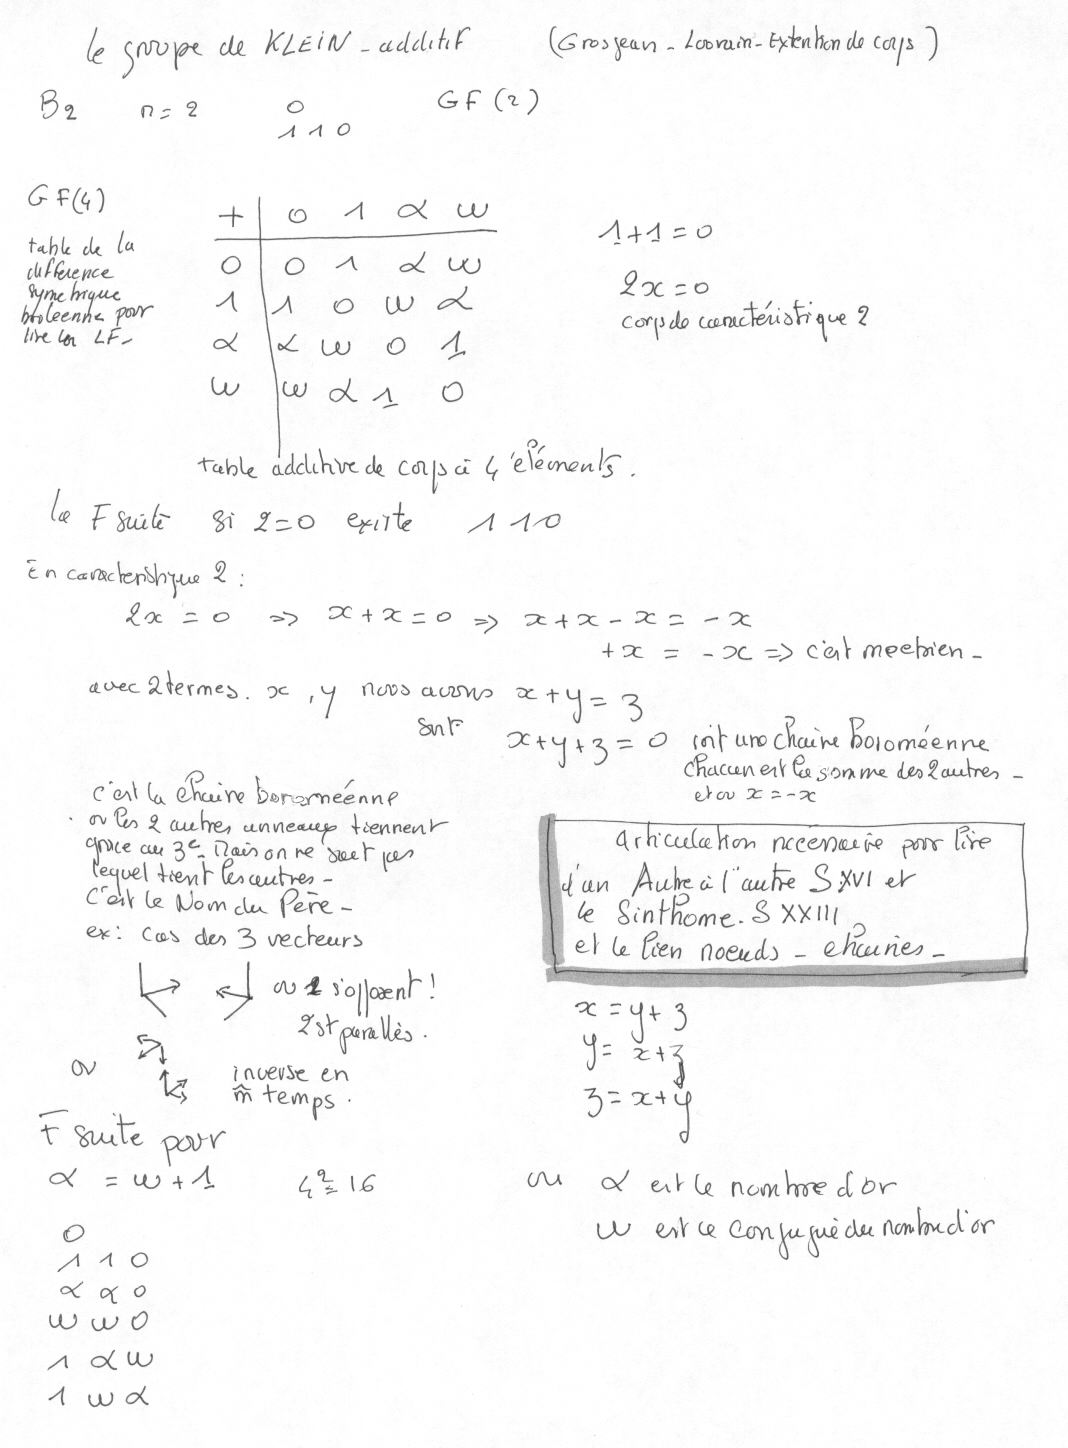 le groupe de KLEIN - additif (Grosjean - Louvain - Extention de corps)
B2 n = 2 0 GF (2)
1 1 0
GF(4)
table de la
difference
symetrique
booleenne pour
lire les LF-
+ 0 1 α w
0 0 1 α w
1 1 0 w α
α α w 0 1
w w α 1 0
1+1=0
2x=0
corps de caractéristique 2
table additive de corps à 4 éléments.
la F suite si 2=0 existe 1 1 0
En caracteristique 2 :
2x = 0 => x + x = 0 => x + x - x = - x
+x = - x => c'est moebien -
avec 2 termes. x, y nous avons x + y = 3
soit x + y + 3 = 0 soit une chaine Boroméenne
chacun est la somme des 2 autres -
et ou x = -x
c'est la chaine boroméenne
ou les 2 autres anneaux tiennent
grace au 3e. Mais on ne sait pas
lequel tient les autres -
C'est le Nom du Père -
ex : cas des 3 vecteurs
ou 2 s'opposent !
2 st parallès.
ou inverse en
m̂ temps.
articulation nécessaire pour lire
d'un Autre à l'autre S XVI et
le Sinthome. S XXIII
et le lien noeuds - chaines -
x = y + 3
y = x + 3
3 = x + y
F suite pour
α = w + 1 4² = 16
ou α est le nombre d'or
w est le conjugué du nombre d'or
0
1 1 0
α α 0
w w 0
1 α w
1 w α